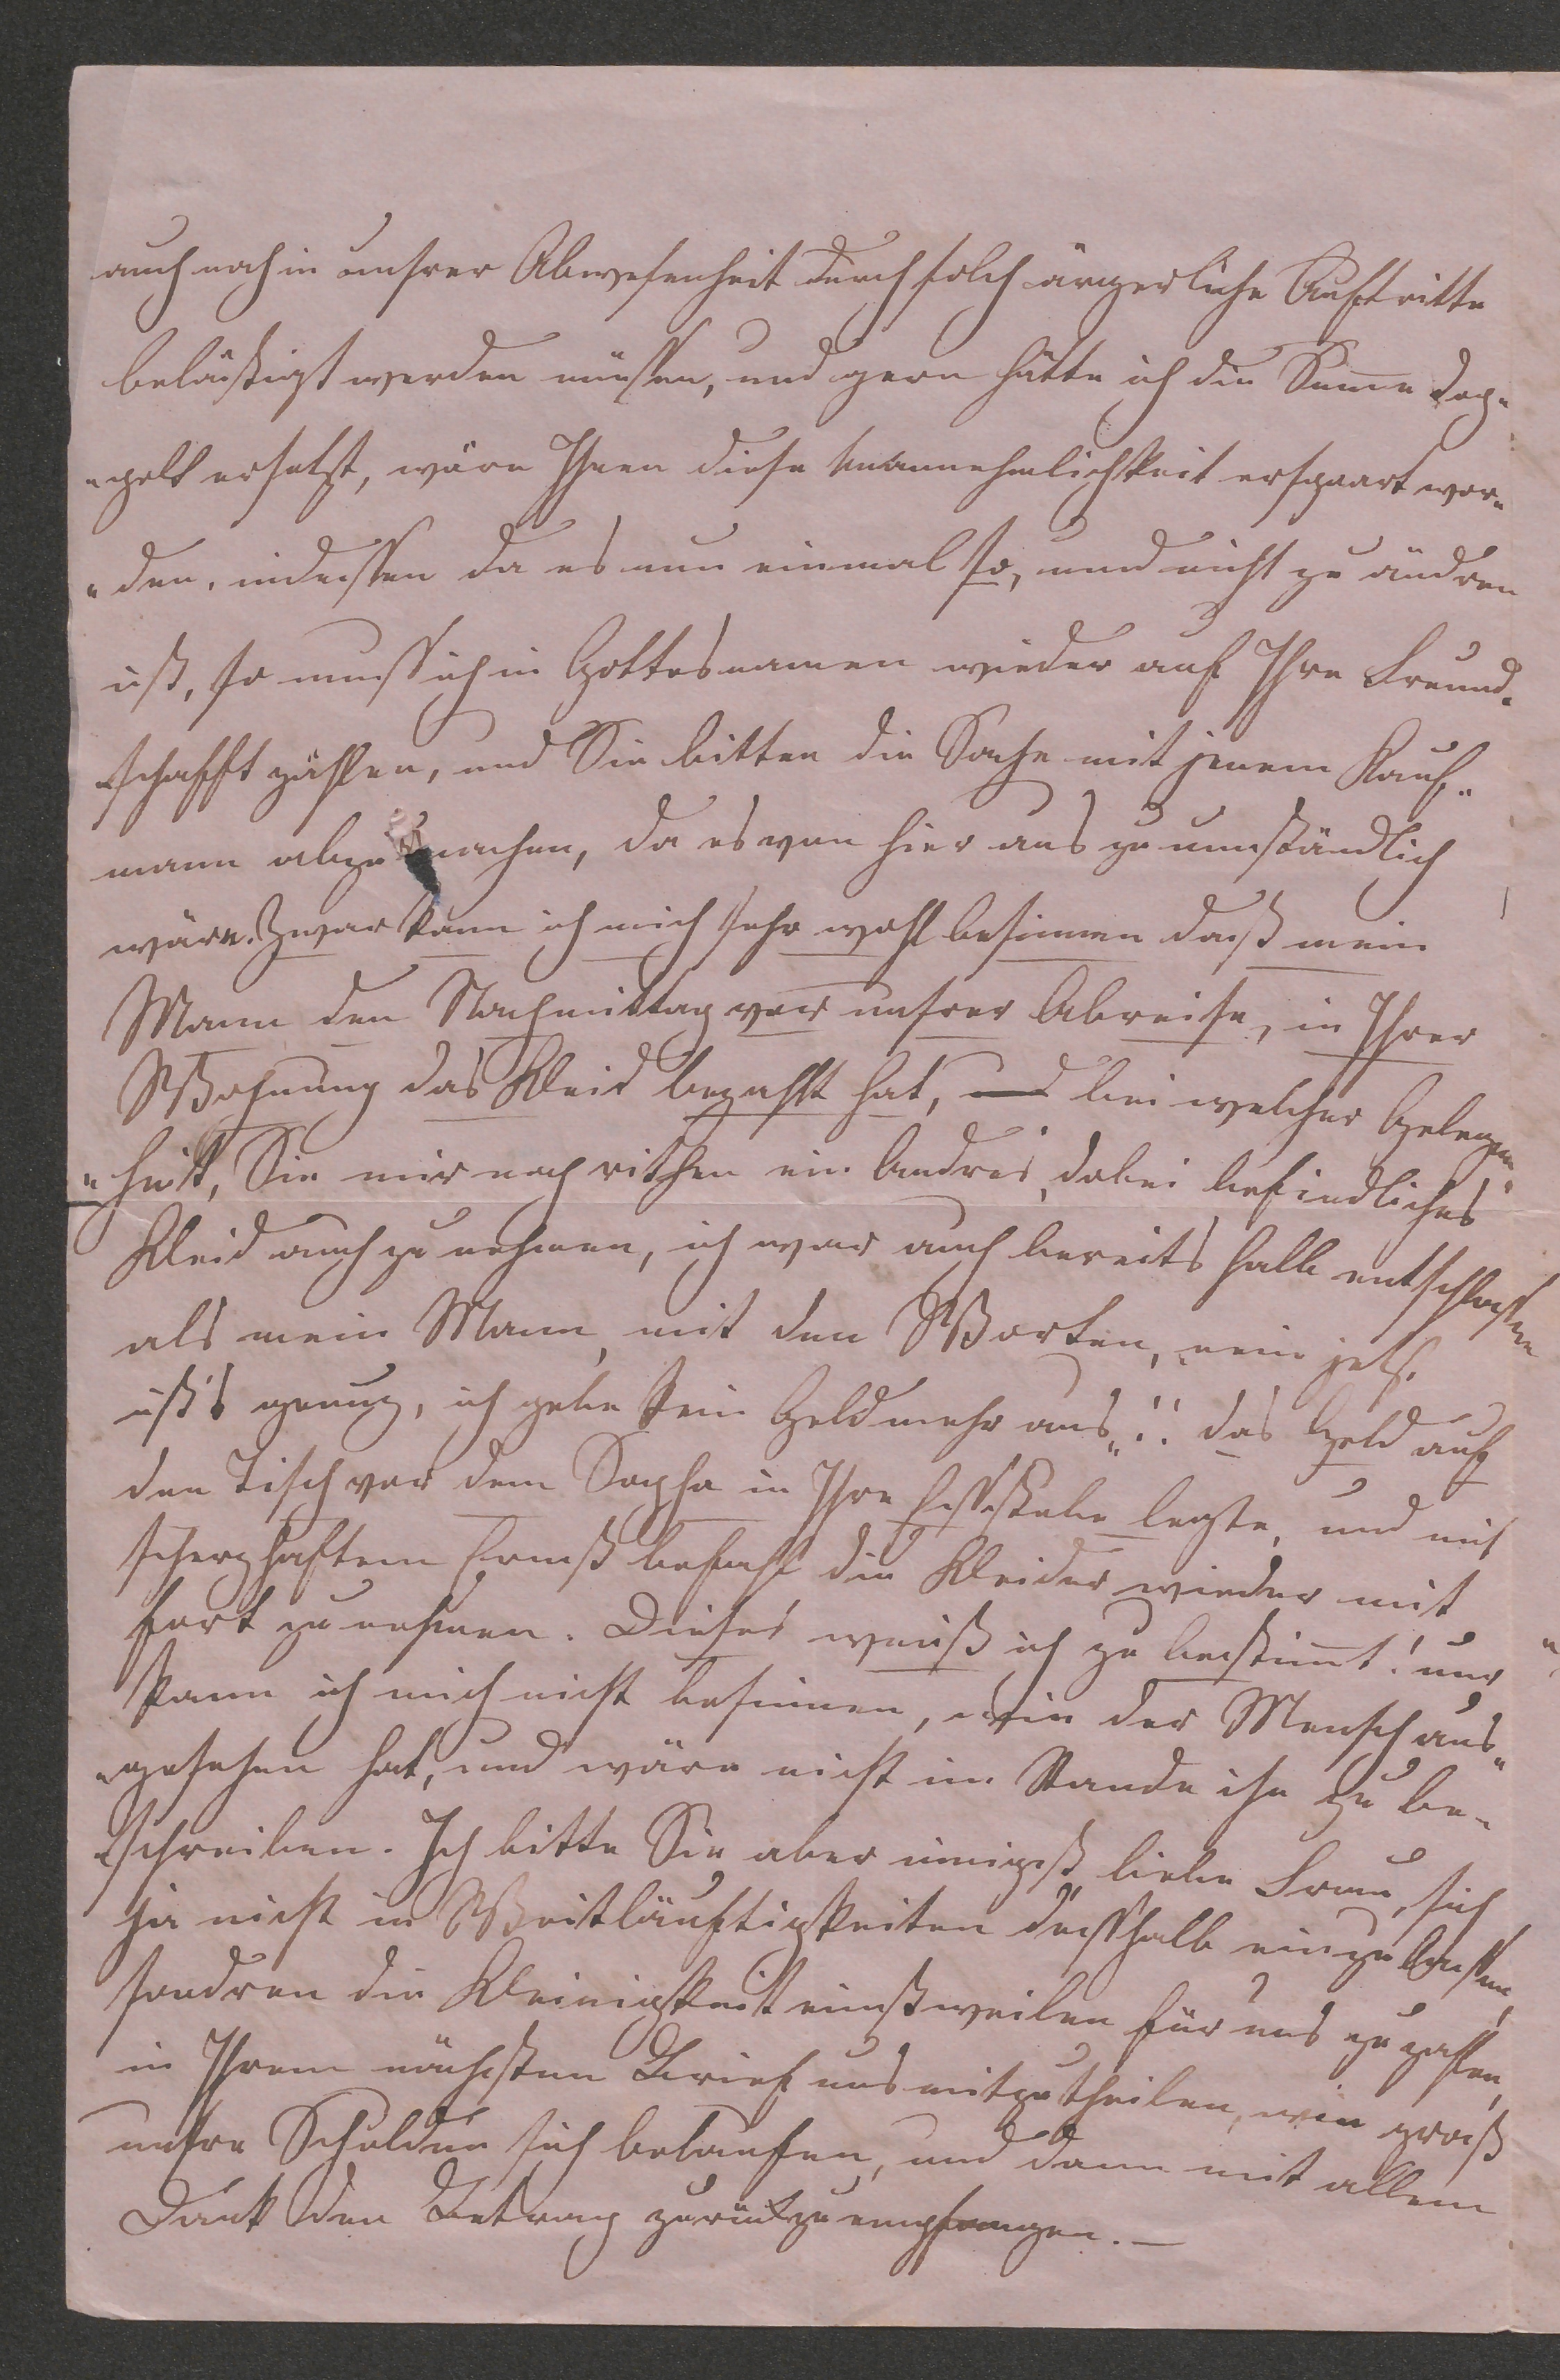 auch noch in unsrer Abwesenheit durch solch ärgerliche Auftritte
belästigt werden müssen, und gern hätte ich die Sume dop„
„pelt ersetzt, wäre Ihnen diese Unannehmlichkeit erspaart wor„
„den, indessen da es nun einmal so, und nicht zu ändren
ist, so muss ich in Gottesnamen wieder auf Ihre Freund„
„schafft zählen, und Sie bitten die Sache mit jenem Kauf„
mann abzumachen, da es von hier aus zu umständlich
wäre. Zwar kann ich mich sehr wohl besinnen daß mein
Mann den Nachmittag vor unsrer Abreise, in Ihrer
Wohnung das Kleid bezahlt hat, und bei welcher Gelegen„
„heit, Sie mir noch riethen ein Andres, dabei befindliches
Kleid auch zu nehmen, ich war auch bereits halb entschlossen
als mein Mann, mit den Worten, „nein jetzt
ist's genug, ich gebe kein Geld mehr aus„!! das Geld auf
den Tisch vor dem Sopha in Ihre Eßstube legte, und mit
scherzhaftem Ernst befahl die Kleider wieder mit
fort zu nehmen. Dieses weiß ich zu bestimt! nur
kann ich mich nicht besinnen, wie der Mensch aus„
„gesehen hat, und wäre nicht im Stande ihn zu be„
„schreiben. Ich bitte Sie aber innigst liebe Frau, sich
ja nicht in Weitläuftigkeiten desshalb einzulassen,
sondren die Kleinigkeit einstweilen für uns zu zahlen,
in Ihrem nächsten Brief uns mitzutheilen, wie groß
unsre Schulden sich belaufen, und dann mit allem
Dank den Betrag zurükzuempfangen. —